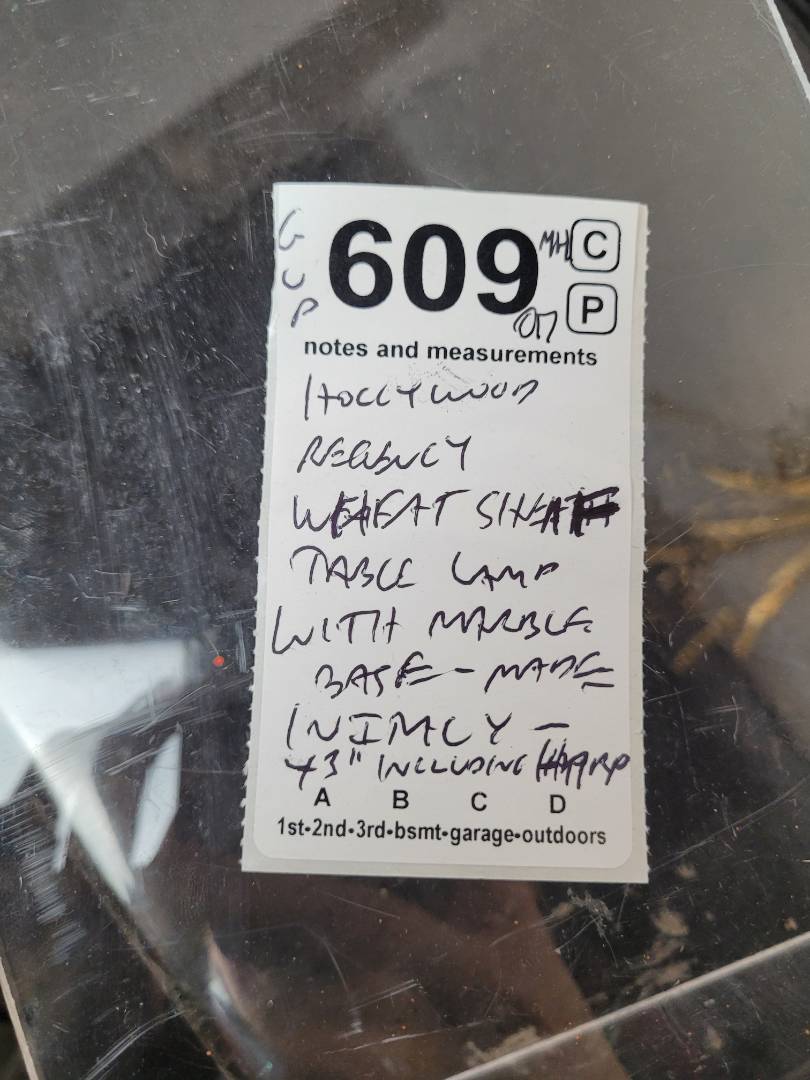 GUP
609 MH C
P
notes and measurements
HOLLYWOOD
REGENCY
WHEAT SHEAF
TABLE LAMP
WITH MARBLE
BASE - MADE
IN IMCY -
43" INCLUDING HARP
A B C D
1st-2nd-3rd-bsmt-garage-outdoors